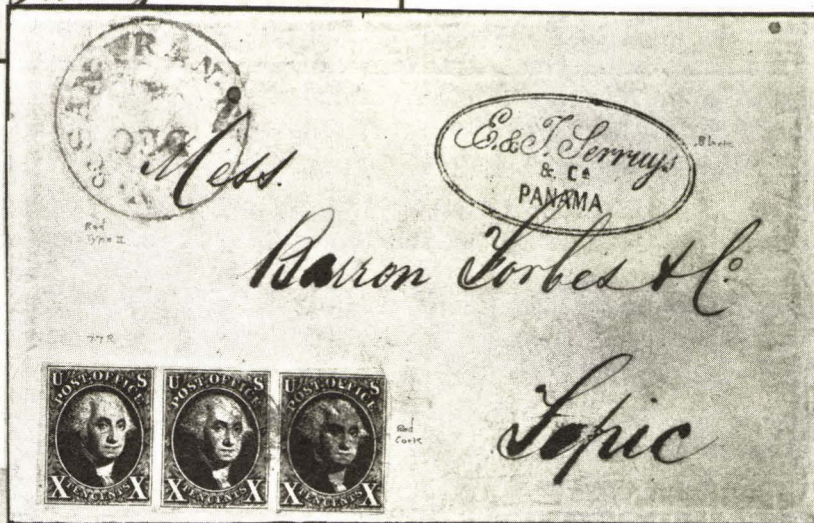 SAN FRAN
DEC
E. & J. Serruys
& Cº
PANAMA
Black
Mess.
Red
Type II
Barron Forbes & Cº
77R
U S
POST OFFICE
X TEN CENTS X
U S
POST OFFICE
X TEN CENTS X
U S
POST OFFICE
X TEN CENTS X
Red
Tepic